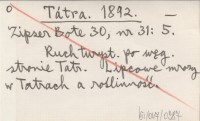 Tátra. 1892.
Zipser Bote 30, nr 31: 5.
Ruch turyst. po węg.
stronie Tatr. Lipcowe mrozy
w Tatrach a roślinność.